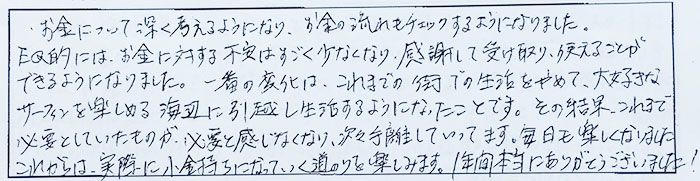 ・お金について深く考えるようになり、お金の流れもチェックするようになりました。
EQ的には、お金に対する不安はすごく少なくなり、感謝して受け取り、使えることが
できるようになりました。一番の変化は、これまでの街での生活をやめて、大好きな
サーフィンを楽しめる海辺に引越し生活するようになったことです。その結果、これまで
必要としていたものが、必要と感じなくなり、次々手離していってます。毎日も楽しくなりました
これからは、実際に小金持ちになっていく道のりを楽しみます。1年間本当にありがとうございました！